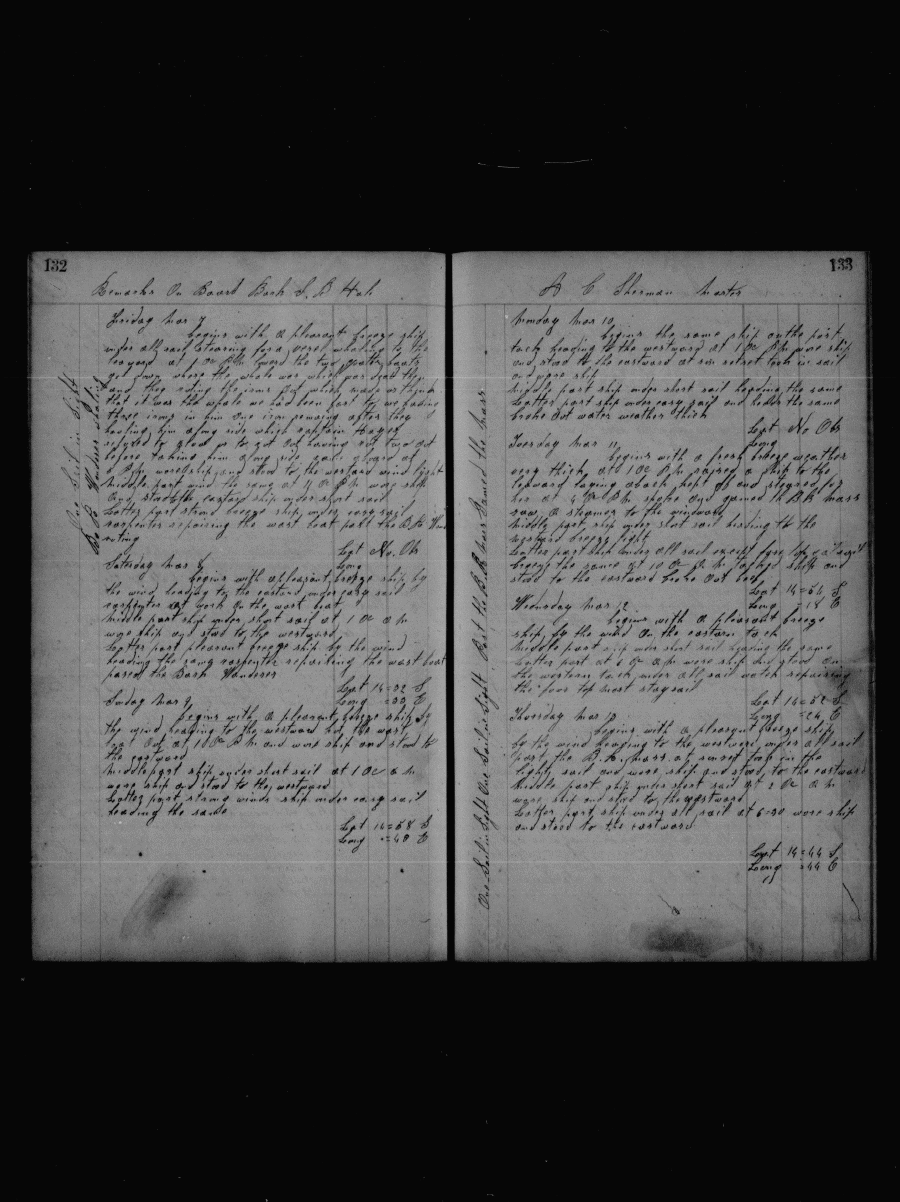 132
Remarks On Board Bark S, B Hat
Friday Mar 7
begins with a pleasant breeze ship
under all sail steering for a vessel whaling to the
leeward at 1 Oc P.M. lowed the two boats
got where the whale was which was dead then
and they the irons Out which made us think
that it was the whale we had been fast to we having
three irons in him One iron remaing after they
hauling him along side which captain
refused to give us to got Out having cut two out
before taking him along side
P.M. wore ship and stood to the westward wind light
middle part wind the same at 4 Oc P.M. wore ship
and stood to the eastard ship under short sail
Latter part strong breeze ship under easy sail
carpenter repairing the wast boat past the B.K Wan
Lat No. Ob
Long
Saturday Mar 8
begins with a pleasant breeze ship by
the wind heading to the eastard under easy sail
carpenter at work On the wast boat
middle part ship under short sail at 1 Oc a m
wore ship and stod to the westward
Latter part pleasant breeze ship by the wind
heading the same carpenter repairing the wast boat
passed the Bark Wanderer
Lat 14=32 S
Long =33 E
Sunday Mar 9
begins with a pleasant breeze ship by
the wind heading to the westward
boat Out at 10 Oc P M and wore ship and stood to
the eastward
middle part ship under short sail at 1 Oc a m
wore ship and stod to the westward
Latter part strong winds ship under easy sail
heading the same
Lat 14=58 S
Long =40 E
One Sail in Sight
133
A C Sherman Master
Monday Mar 10
begins the same ship on the port
tack heading to the westward at 1 Oc P.M. wore ship
and stood to the eastward at sun setset took in sail
and wore ship
Middle part ship under short sail heading the same
Latter part ship under easy sail and heden the same
broke Out water weather thick
Lat No Ob
Long
Tuesday Mar 11
begins with a fresh breeze weather
very thick at 1 Oc P.M. raised a ship to the
leeward laying aback kept off and steered for
her at 4 P.M. spoke and gamed th B.K. Mars
saw a steamer to the windward
Middle part ship under short sail heading to the
westward breeze light
Latter part ship under all sail
breeze the same at 10 Oc A. M. tacked ship and
stod to the eastward broke Out beef
Lat 14=54 S
Long =18 E
Wednesday Mar 12
begins with a pleasant breeze
ship by the wind On the eastern tack
Middle part ship under short sail heading the same
Latter part at 6 Oc a m wore ship and stood On
the western tack under all sail watch repairing
the four top mast staysail
Lat 14=52 S
Long =24 E
Thursday Mar 13
begins with a pleasant breeze ship
by the wind heading to the westward under all sail
past the B.K. Mars at sunset took in the
light sail and wore ship and stood to the eastward
Middle part ship under short sail at 1 Oc a m
wore ship and stod to the westward
Latter part ship under all sail at 6=30 wore ship
and stood to the eastward
Lat 14=44 S
Long =44 E
One Sail in Sight One Sail in Sight Past the B.K. Mars Gamed the Mars